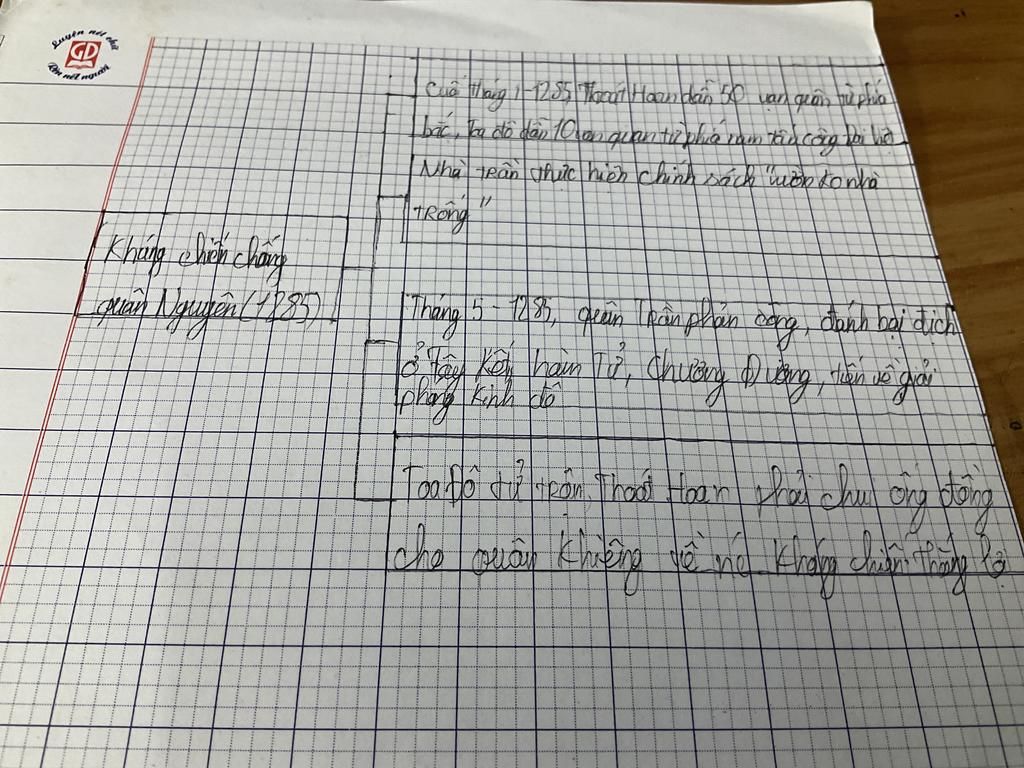 Luyện nét chữ
GD
Rèn nét người
Cuố tháng 1-1285 Thoát Hoan dẫn 50 vạn quân từ phía
bắc, Toa đô dẫn 10 vạn quân từ phía nam tấn công Đại Việ
Nhà trần thực hiện chính sách "vườn ko nhà
trống"
Kháng chiến chống
quân Nguyên (1285)
Tháng 5-1285, quân Trần phản công, đánh bại địch
ở Tây Kết, hàm Tử, Chương Dương, tiến về giải
phóng kinh đô
Toa Đô tử trận, Thoát Hoan phải chui ống đồng
cho quân khiêng về nc Kháng chiến thắng lợi